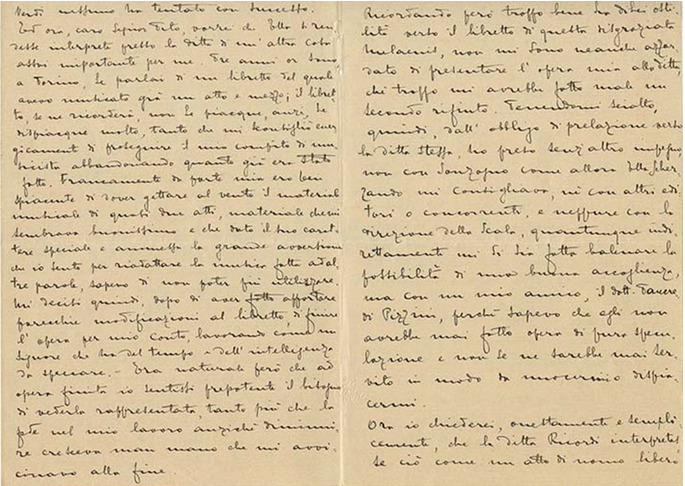 Verdi nessuno ha tentato con successo.
Ed ora, caro Signor Tito, vorrei che Ella si ren-
desse interprete presso la ditta di un'altra cosa
assai importante per me. Tre anni or sono,
a Torino, Le parlai di un libretto del quale
avevo musicato già un atto e mezzo; il libret-
to, se ne ricorderà, non Le piacque, anzi, Le
dispiacque molto, tanto che mi sconsigliò ener-
gicamente di proseguire il mio compito di mu-
sicista abbandonando quanto già era stato
fatto. Francamente da parte mia ero ben
spiacente di dover gettare al vento il materiale
musicale di quasi due atti, materiale che mi
sembrava buonissimo e che dato il suo carat-
tere speciale e ammessa la grande avversione
che io sento per riadattare la musica fatta ad al-
tre parole, sapevo di non poter più utilizzare.
Mi decisi quindi, dopo di aver fatto apportare
parecchie modificazioni al libretto, di finire
l'opera per mio conto, lavorando come un
signore che ha del tempo e dell'intelligenza
da sprecare. - Era naturale però che ad
opera finita io sentissi prepotente il bisogno
di vederla rappresentata, tanto più che la
fede nel mio lavoro anzichè diminui-
re cresceva man mano che mi avvi-
cinavo alla fine.
Ricordando però troppo bene la di Lei osti-
lità verso il libretto di questa disgraziata
Melaenis, non mi sono neanche azzar-
dato di presentare l'opera mia alla ditta,
chè troppo mi avrebbe fatto male un
secondo rifiuto. Tenendomi sciolto,
quindi, dall'obbligo di prelazione verso
la ditta stessa, ho preso senz'altro impegno,
non con Sonzogno come allora Ella scher-
zando mi consigliava, nè con altri edi-
tori o concorrenti, e neppure con la
direzione della Scala, quantunque indi-
rettamente mi si sia fatta balenare la
possibilità di una buona accoglienza,
ma con un mio amico, il dott.
di Pizzini, perchè sapevo che egli non
avrebbe mai fatto opera di pura specu-
lazione e non se ne sarebbe mai ser-
vito in modo da nuocermi o dispia-
cermi.
Ora io chiederei, onestamente e sempli-
cemente, che la ditta Ricordi interpretas-
se ciò come un atto di uomo libero